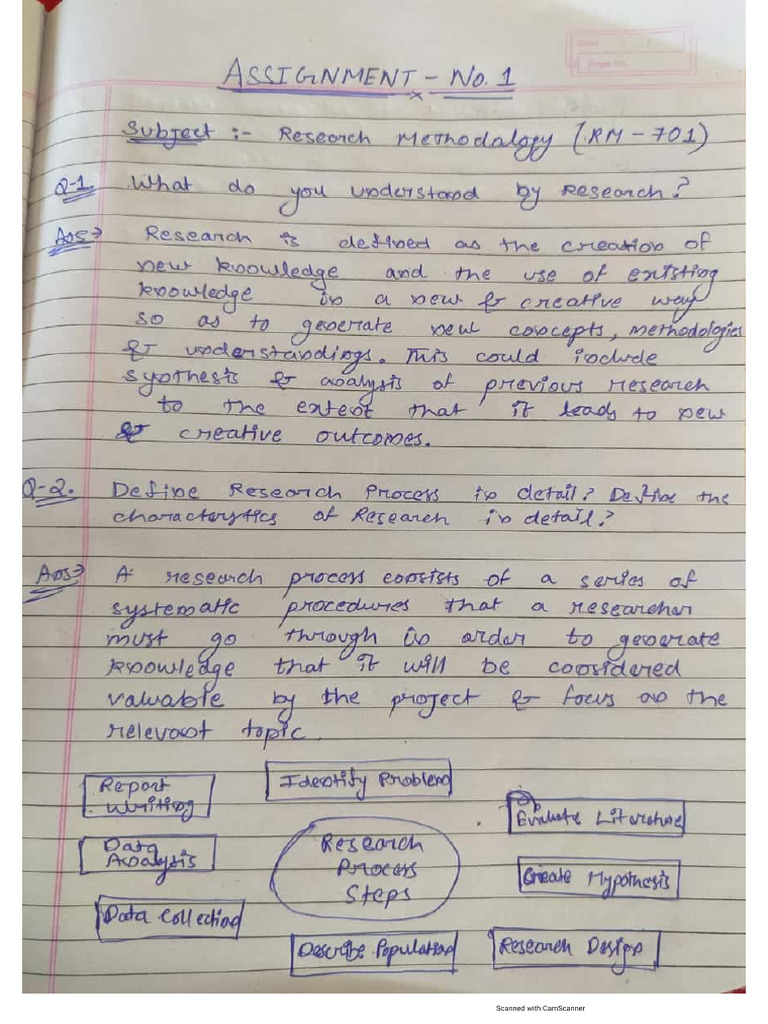 ASSIGNMENT - No. 1
Subject :- Research Methodalogy (RM - 701)
Q-1 What do you understand by Research?
Ans→ Research is defined as the creation of
new knowledge and the use of existing
knowledge in a new & creative way
so as to generate new concepts, methodologies
& understandings. This could include
synthesis & analysis of previous research
to the extent that it leads to new
& creative outcomes.
Q-2. Define Research Process in detail? Define the
characterstics of Research in detail?
Ans→ A research process consists of a series of
systematic procedures that a researcher
must go through in order to generate
knowledge that it will be considered
valuable by the project & focus on the
relevant topic.
Identify Problem
Evaluate Literature
Create Hypothesis
Research Design
Describe Population
Data Collection
Data
Analysis
Report
Writing
Research
Process
Steps
Scanned with CamScanner